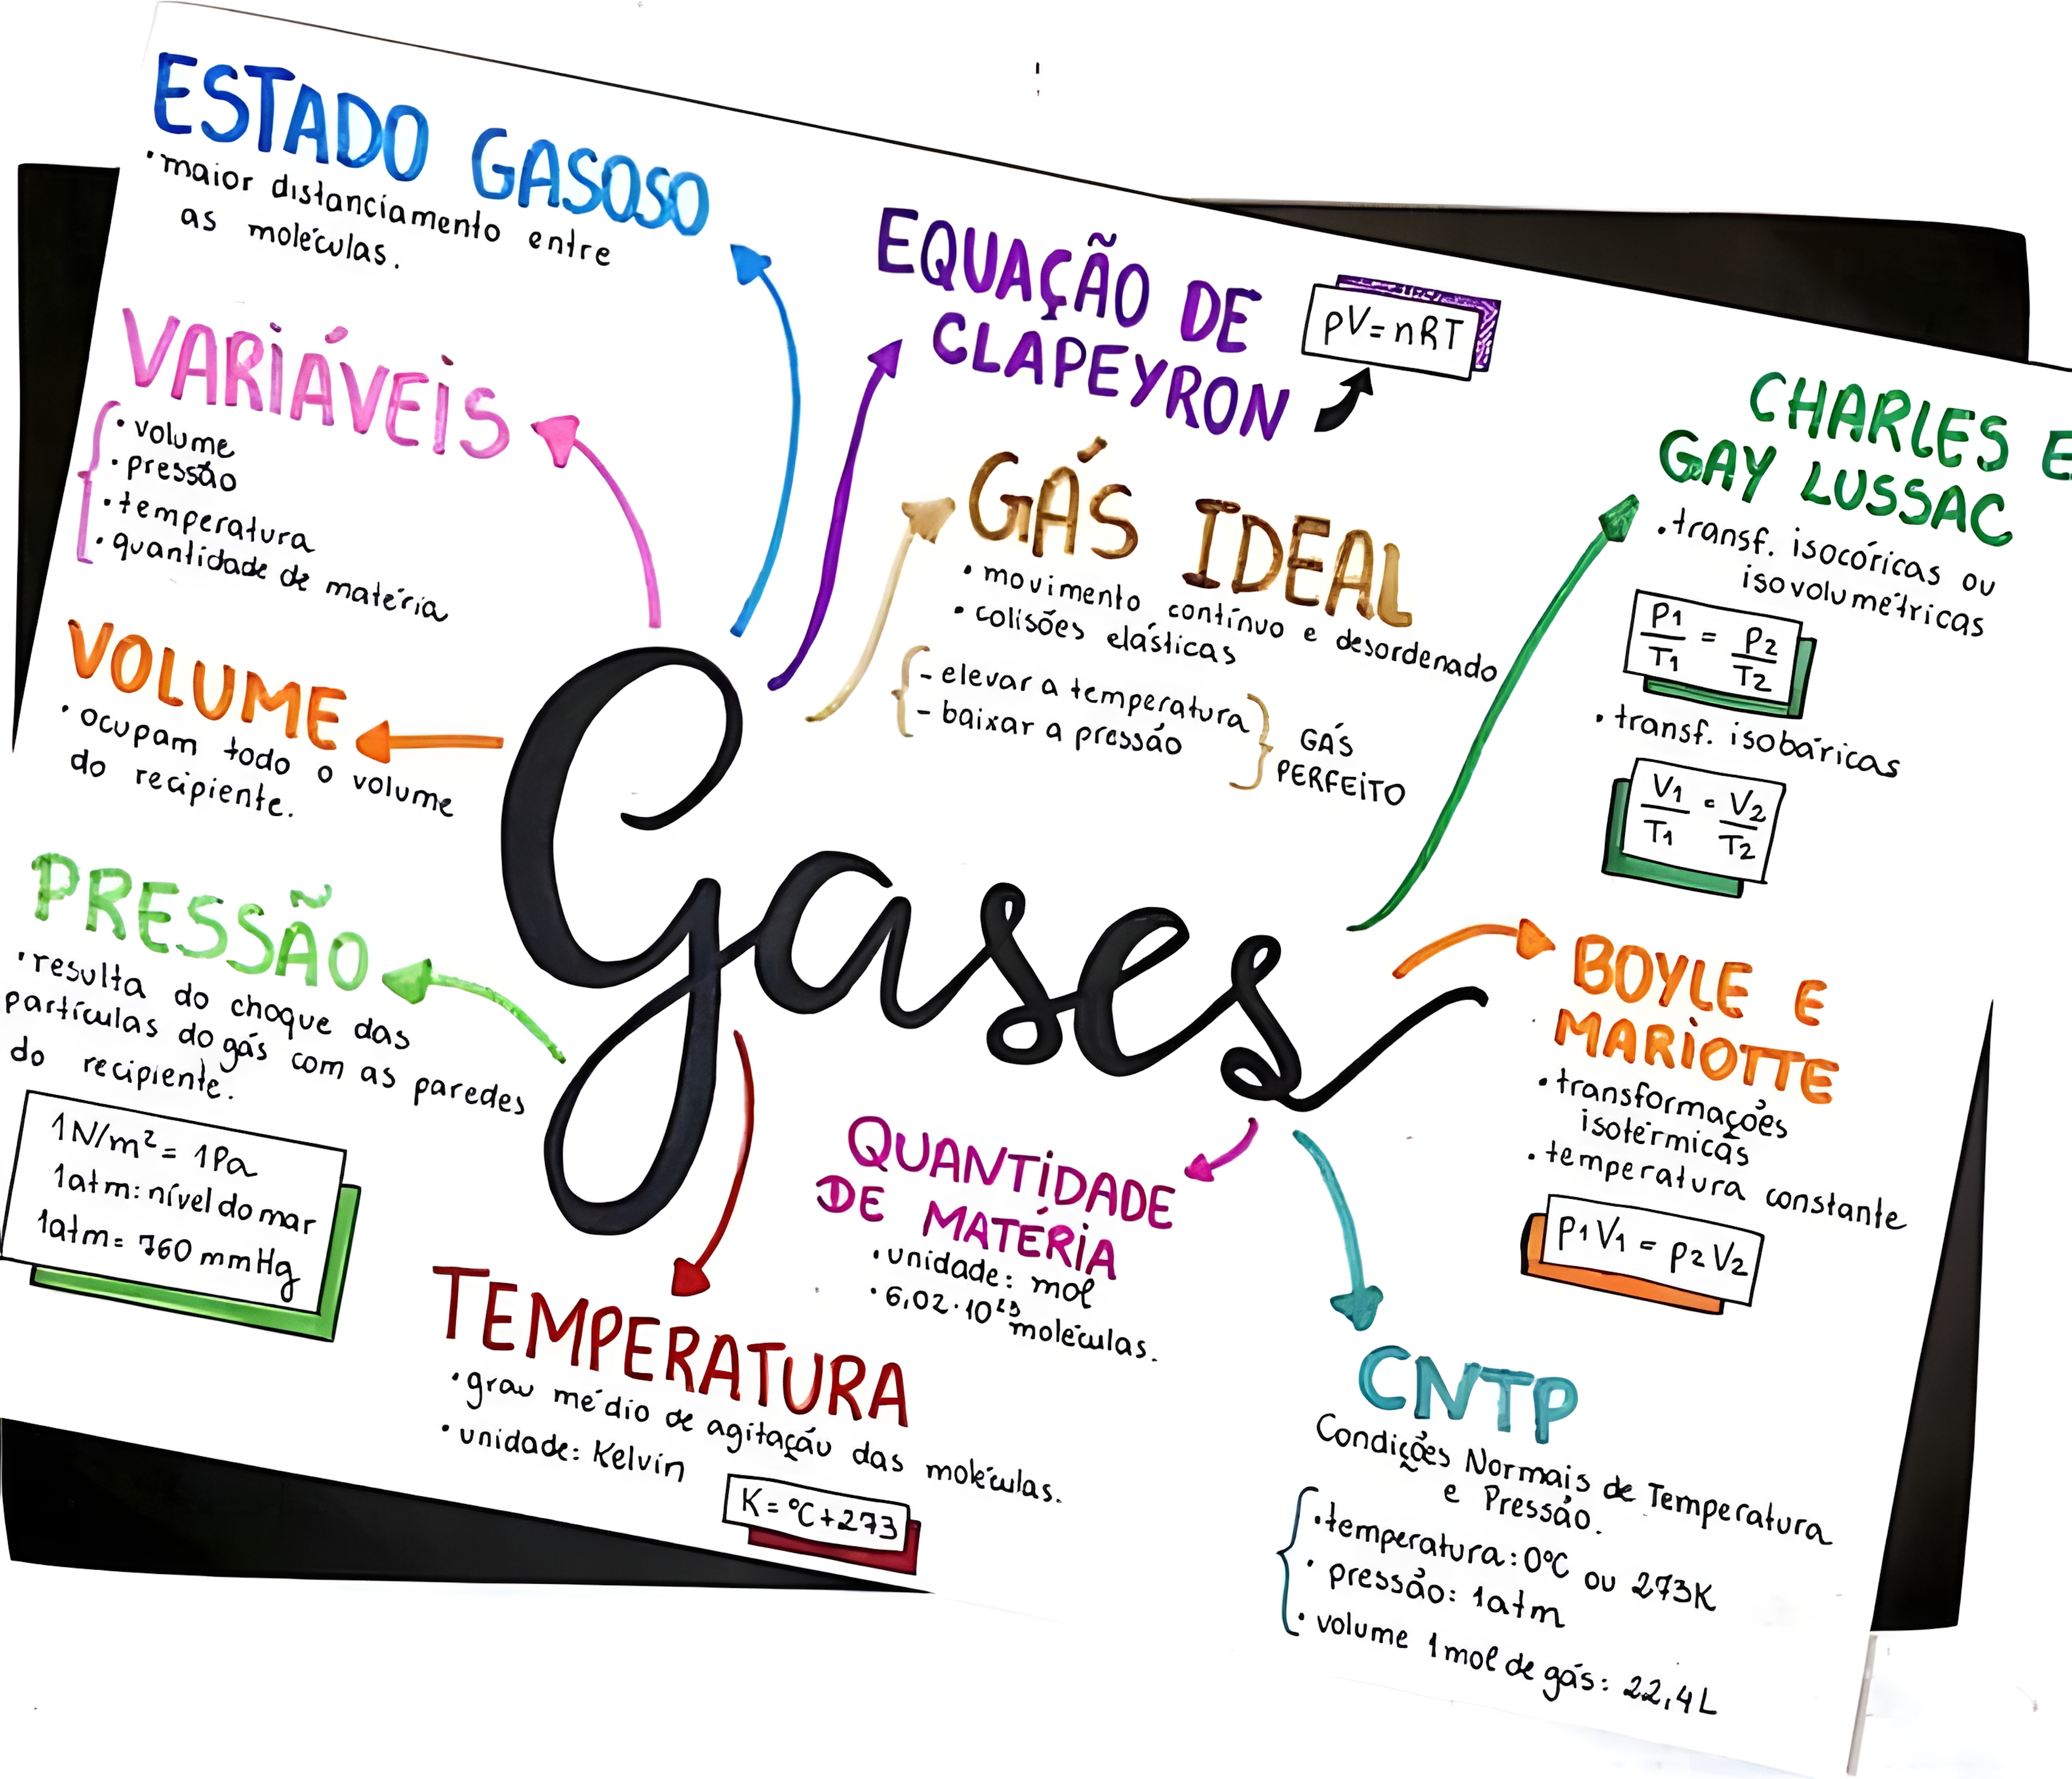 ESTADO GASOSO
• maior distanciamento entre
as moléculas.
VARIÁVEIS
• volume
• pressão
• temperatura
• quantidade de matéria
VOLUME
• ocupam todo o volume
do recipiente.
PRESSÃO
• resulta do choque das
partículas do gás com as paredes
do recipiente.
1N/m² = 1Pa
1atm: nível do mar
1atm = 760 mmHg
EQUAÇÃO DE
CLAPEYRON
pV = nRT
GÁS IDEAL
• movimento contínuo e desordenado
• colisões elásticas
- elevar a temperatura
- baixar a pressão
GÁS
PERFEITO
Gases
TEMPERATURA
• grau médio de agitação das moléculas.
• unidade: Kelvin
K = °C + 273
QUANTIDADE
DE MATÉRIA
• unidade: mol
• 6,02 · 10²³ moléculas.
CHARLES E
GAY LUSSAC
• transf. isocóricas ou
isovolumétricas
P1/T1 = P2/T2
• transf. isobáricas
V1/T1 = V2/T2
BOYLE E
MARIOTTE
• transformações
isotérmicas
• temperatura constante
P1V1 = P2V2
CNTP
Condições Normais de Temperatura
e Pressão.
• temperatura: 0°C ou 273K
• pressão: 1atm
• volume 1mol de gás: 22,4L